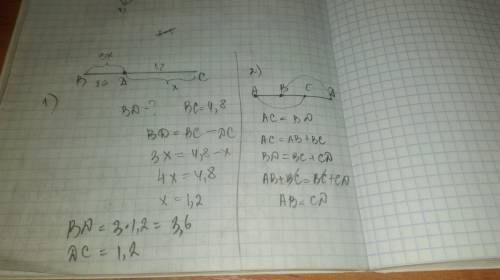 1)
3x 1,2
B 3,6 D x C
BD = ? BC = 4,8
BD = BC - DC
3x = 4,8 - x
4x = 4,8
x = 1,2
BD = 3 · 1,2 = 3,6
DC = 1,2
2)
A B C D
AC = BD
AC = AB + BC
BD = BC + CD
AB + BC = BC + CD
AB = CD